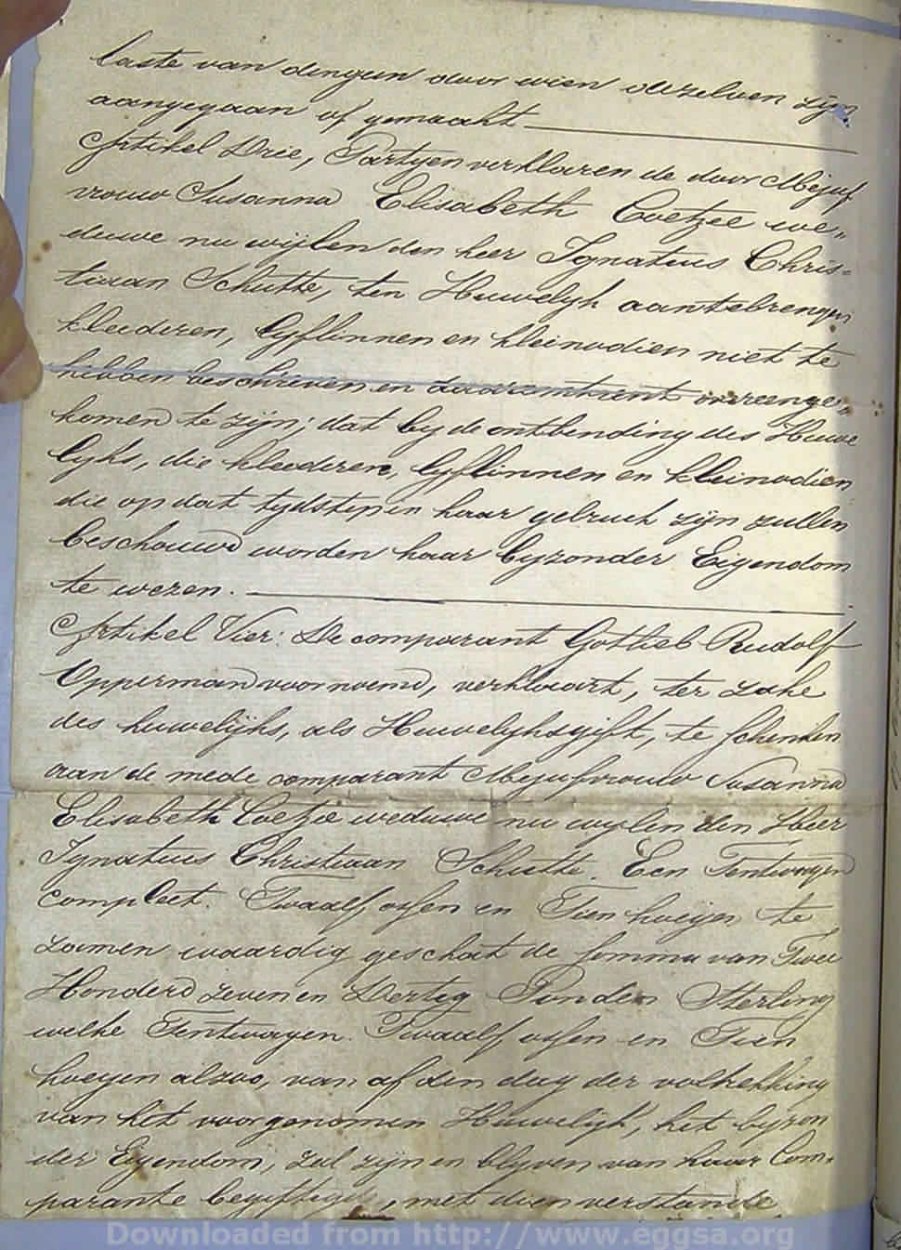 laste van dengeen door wien dezelven zijn
aangegaan of gemaakt
Artikel Drie, Partyen verklaren de door Mejuf
vrouw Susanna Elisabeth Coetzee we„
duwe nu wijlen den heer Ignatius Chris=
tiaan Schutte, ten Huwelyk aantebrengen
kleederen, Lyflinnen en kleinodien niet te
hebben beschreven en daaromtrent overeenge„
komen te zijn; dat by de ontbinding des Huwe
lyks, die kleederen, Lyflinnen en kleinodien
die op dat tydstip in haar gebruik zyn zullen
beschouwd worden haar byzonder Eigendom
te wezen.
Artikel Vier: De comparant Gotlieb Rudolf
Opperman voornoemd, verklaart, ter zake
des huwelijks, als Huwelyksgift, te schenken
aan de mede comparant Mejufvrouw Susanna
Elisabeth Coetzee weduwe nu wylen den Heer
Ignatius Christiaan Schutte. Een Tentwagen
compleet. Twaalf ossen en Tien koeijen te
zamen waardig geschat de somma van Twee
Honderd zeven en Dertig Ponden Sterling
welke Tentwagen. Twaalf ossen en Tien
koeyen alzoo, van af den dag der voltrekking
van het voorgenomen Huwelijk, het byzon
der Eigendom, zal zyn en blyven van haar Com„
parante begiftigde, met dien verstande
Downloaded from http://www.eggsa.org